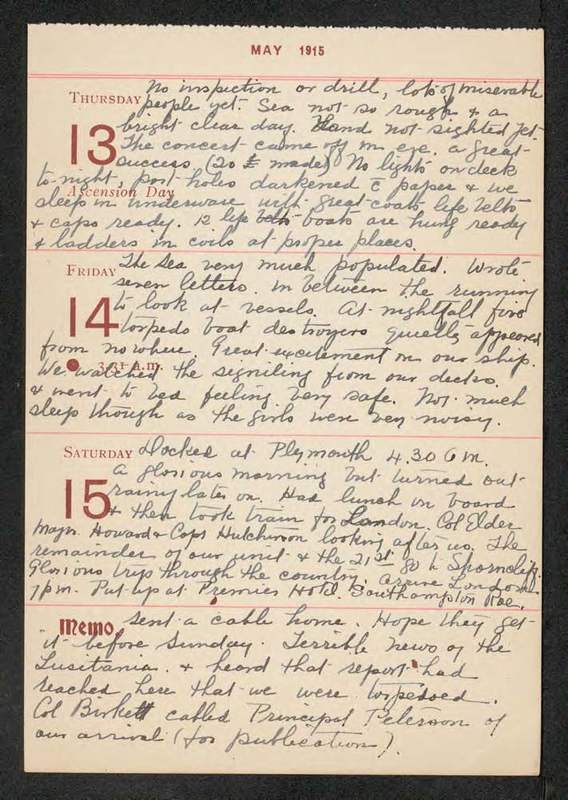 MAY 1915
THURSDAY No inspection or drill, lots of miserable
people yet. Sea not so rough & a
13 bright clear day. Land not sighted yet.
The concert came off in eve. a great
success (20 £ made) No lights on deck
to-night, port holes darkened c̄ paper & we
Ascension Day
sleep in underware with great coats life belts
& caps ready. 12 life boats are hung ready
& ladders in coils at proper places.
FRIDAY The sea very much populated. Wrote
seven letters. in between the running
14 to look at vessels. At nightfall five
torpedo boat destroyers quietly appeared
from nowhere. Great excitement on our ship.
3.31 a.m.
We watched the signiling from our decks.
& went to bed feeling very safe. Not much
sleep though as the girls were very noisy.
SATURDAY Docked at Plymouth 4.30 a m.
a glorious morning but turned out
15 rainy later on. Had lunch on board
& then took train for London. Col Elder
Major Howard & Capt Hutchinson looking after us. The
remainder of our unit & the 21st go to Shorncliffe.
Glorious trip through the country. arrive London
7 pm. Put up at Premier Hotel. Southampton Row.
Memo. Sent a cable home. Hope they get
it before Sunday. Terrible news of the
Lusitania. & heard that report had
reached here that we were torpedoed.
Col Birkett cabled Principal Peterson of
our arrival (for publication).